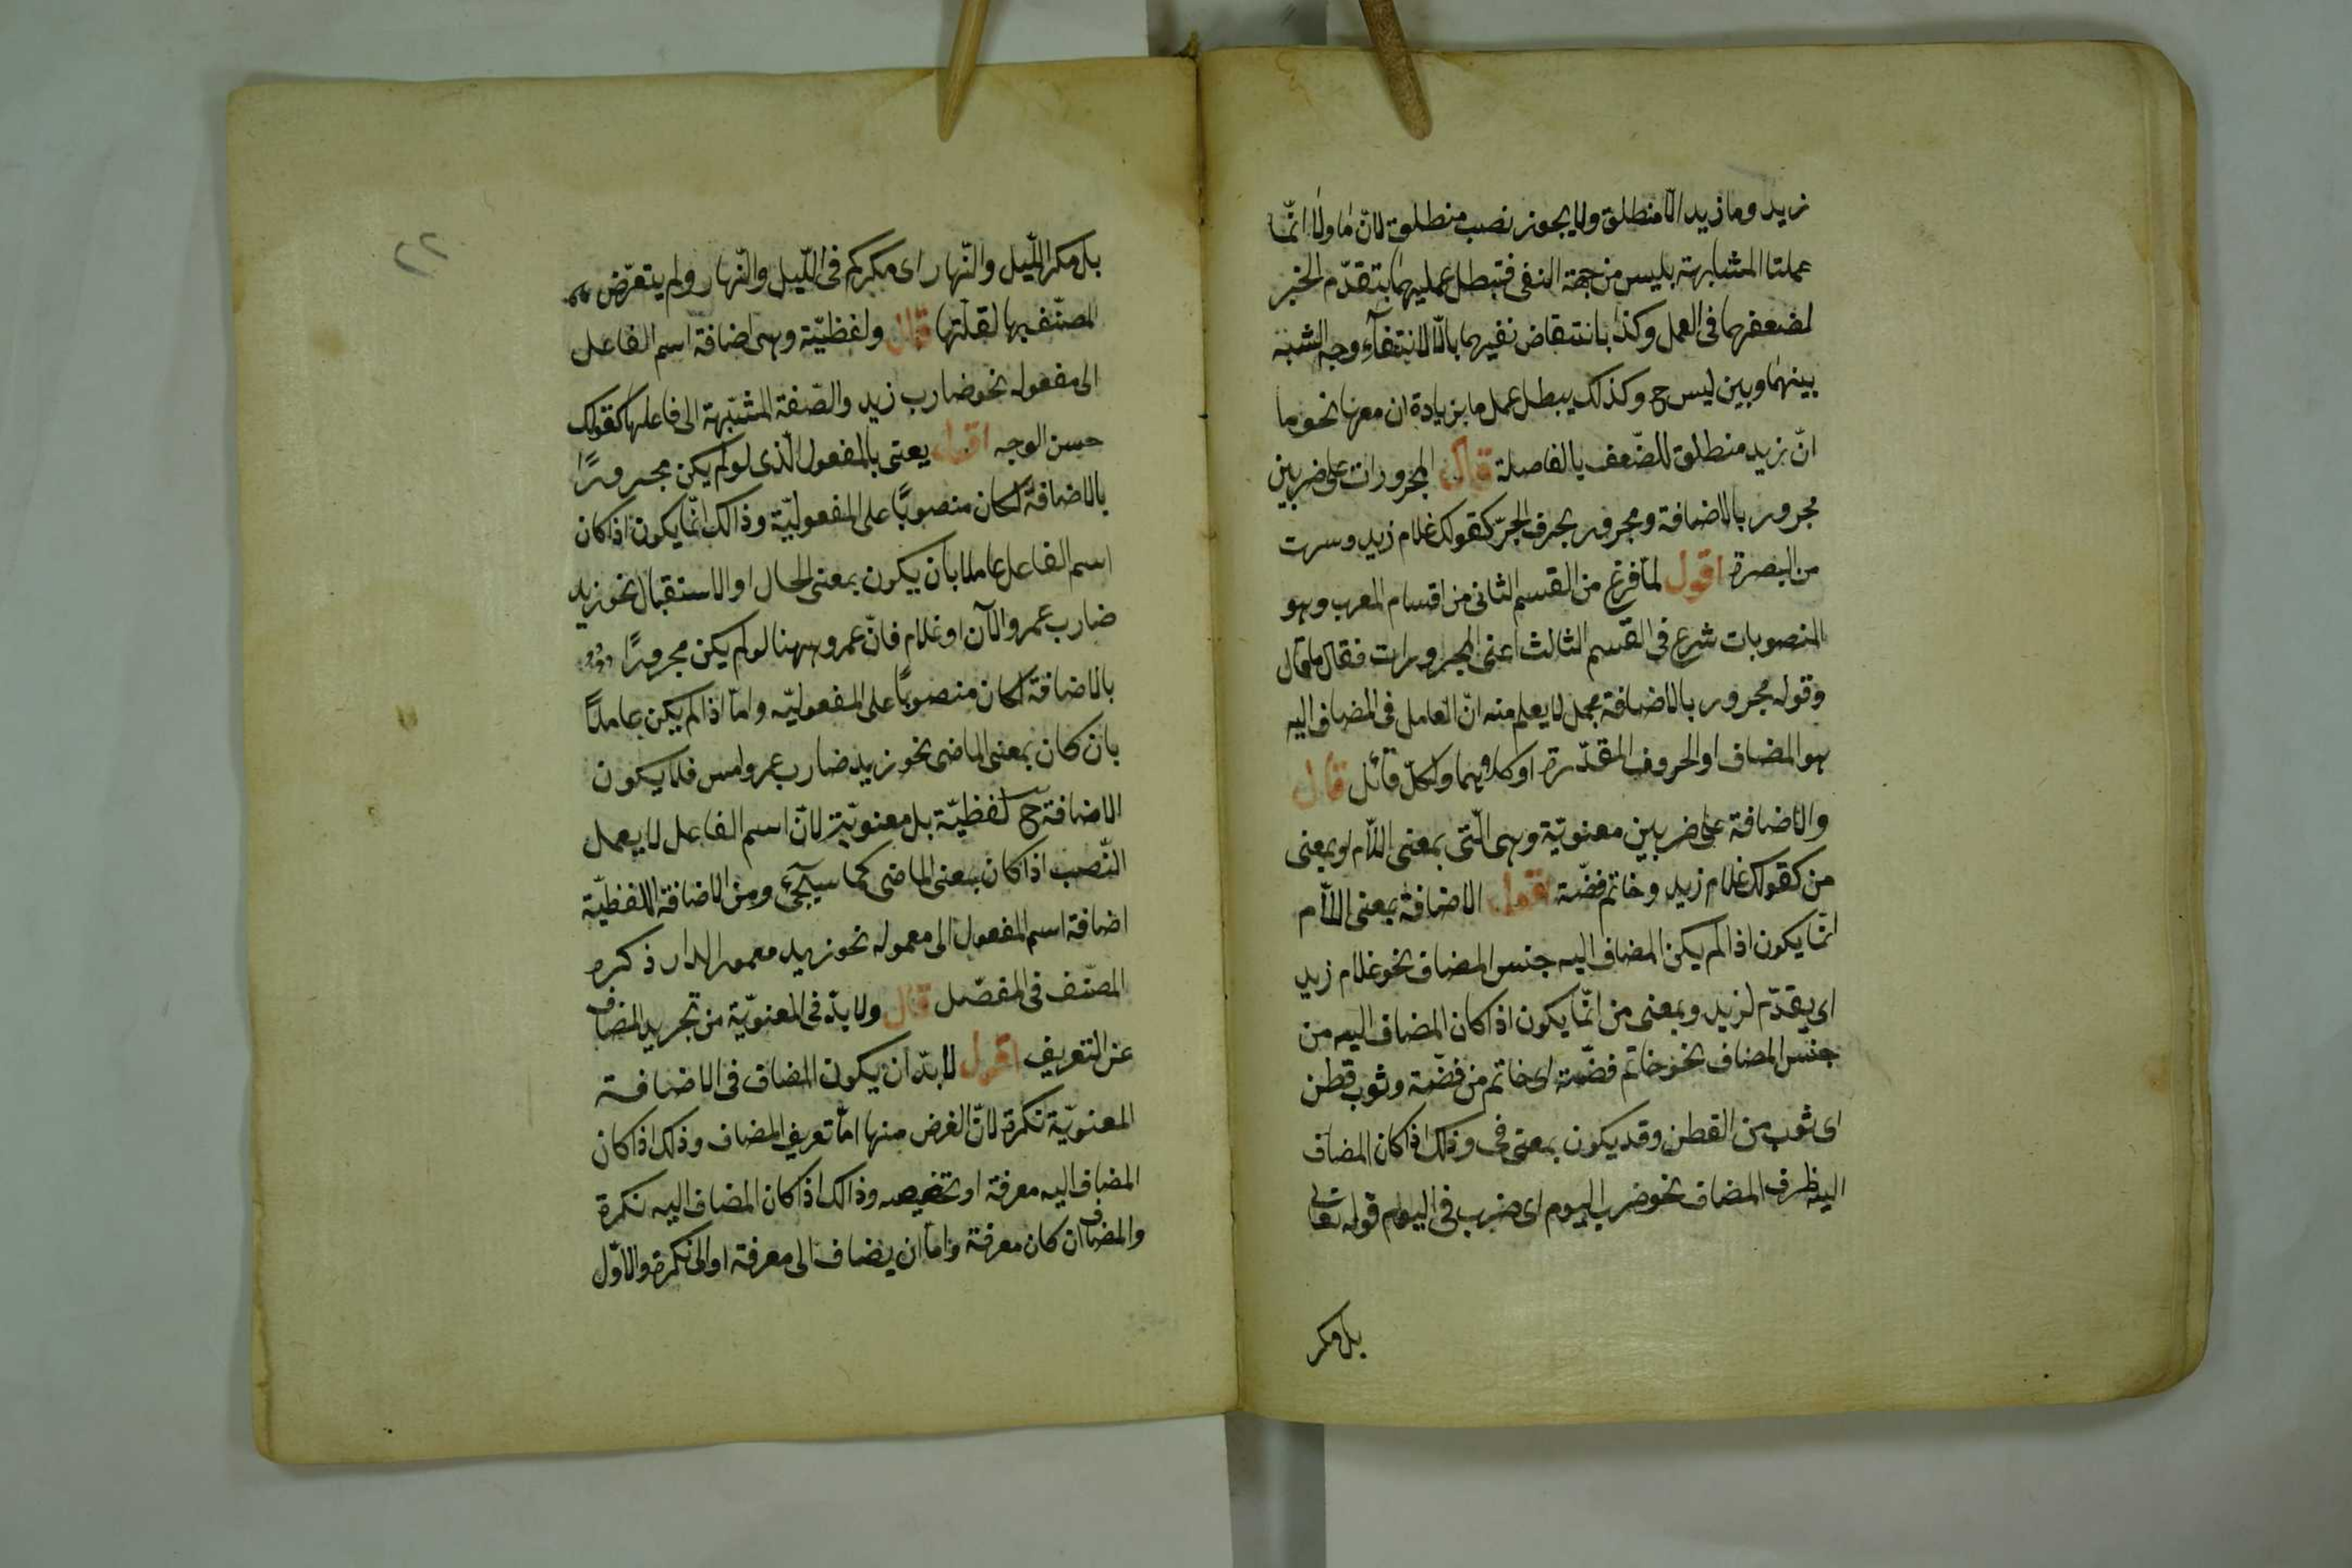 زيد وما زيد الا منطلق ولا يجوز نصب منطلق لانّ ما ولا انّما
عملتا المشابهة بليس من جهة النفى فتبطل عمليهما بتقدّم الخبر
لضعفهما فى العمل وكذا بانتقاض نفيهما بالّا لانتفآء وجه الشبه
بينهما وبين ليس ح وكذلك يبطل عمل ما بزيادة ان معها نحو ما
انّ زيد منطلق للضّعف بالفاصلة قال المجرورات على ضربين
مجرور بالاضافة ومجرور بحرف الجرّ كقولك غلام زيد وسرت
من البصرة اقول لمّا فرغ من القسم الثانى من اقسام المعرب وهو
المنصوبات شرع فى القسم الثالث اعنى المجرورات فقال ما قال
وقوله مجرور بالاضافة مجمل لا يعلم منه انّ العامل فى المضاف اليه
هو المضاف او الحروف المقدّرة او كلاهما ولكلّ قائل قال
والاضافة على ضربين معنويّة وهى الّتى بمعنى اللّام او بمعنى
من كقولك غلام زيد وخاتم فضّة اقول الاضافة بمعنى اللّام
انّما يكون اذا لم يكن المضاف اليه جنس المضاف نحو غلام زيد
اى يقدّم لزيد وبمعنى من انّما يكون اذا كان المضاف اليه من
جنس المضاف نحو خاتم فضّة اى خاتم من فضّة وثوب قطن
اى ثوب من القطن وقد يكون بمعنى فى وذلك اذا كان المضاف
اليه ظرف المضاف نحو ضرب اليوم اى ضرب فى اليوم قوله تعالى
بل مكر
٢٢
بل مكر اللّيل والنّهار اى مكركم فى اللّيل والنّهار ولم يتعرّض
المصنّف بها لقلّتها قال ولفظيّة وهى اضافة اسم الفاعل
الى مفعوله نحو ضارب زيد والصّفة المشبّهة الى فاعلها كقولك
حسن الوجه اقول يعنى بالمفعول الّذى لو لم يكن مجرورًا
بالاضافة لكان منصوبًا على المفعوليّة وذالك انّما يكون اذا كان
اسم الفاعل عاملا بان يكون بمعنى الحال او الاستقبال نحو زيد
ضارب عمرو الآن او غلام فانّ عمرو ههنا لو لم يكن مجرورًا
بالاضافة لكان منصوبًا على المفعوليّه وامّا اذا لم يكن عاملًا
بان كان بمعنى الماضى نحو زيد ضارب عمرو امس فلا يكون
الاضافة ح لفظيّة بل معنويّة لانّ اسم الفاعل لا يعمل
النّصب اذا كان بمعنى الماضى كما سيجئ ومن الاضافة اللفظيّة
اضافة اسم المفعول الى معموله نحو زيد معمور الدار ذكره
المصنّف فى المفصّل قال ولا بدّ فى المعنويّة من تجريد المضاف
عن التعريف اقول لا بدّ ان يكون المضاف فى الاضافة
المعنويّة نكرة لانّ الغرض منها امّا تعريف المضاف وذلك اذا كان
المضاف اليه معرفة او تخصيصه وذالك اذا كان المضاف اليه نكرة
والمضاف ان كان معرفة وامّا ان يضاف الى معرفة او الى نكرة والاوّل